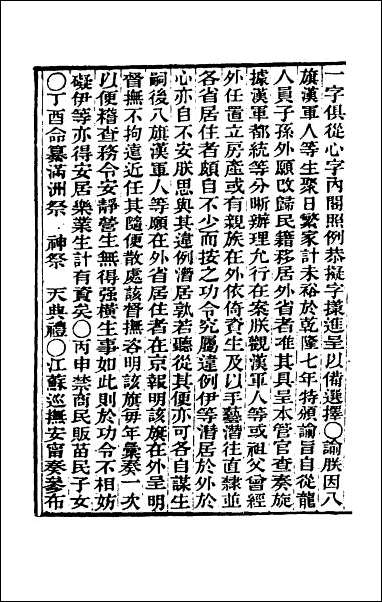 一字俱從心字內閣照例恭擬字㨾進呈以備選擇〇諭朕因八
旗漢軍人等生聚日繁家計未裕於乾隆七年特頒諭旨自從龍
人員子孫外願改歸民籍移居外省者准其具呈本管官查奏旋
據漢軍都統等分晰辦理允行在案朕觀漢軍人等或祖父曾經
外任置立房產或有親族在外依倚資生及以手藝潛往直隸並
各省居住者頗自不少而按之功令究屬違例伊等潛居於外於
心亦自不安朕思與其違例潛居孰若聽從其便亦可各自謀生
嗣後八旗漢軍人等願在外省居住者在京報明該旗在外呈明
督撫不拘遠近任其隨便散處該督撫咨明該旗每年彙奏一次
以便稽查務令安靜營生無得强橫生事如此則於功令不相妨
礙伊等亦得安居樂業生計有資矣〇丙申禁商民販苗民子女
〇丁酉命纂滿洲祭 神祭 天典禮〇江蘇巡撫安甯奏參布